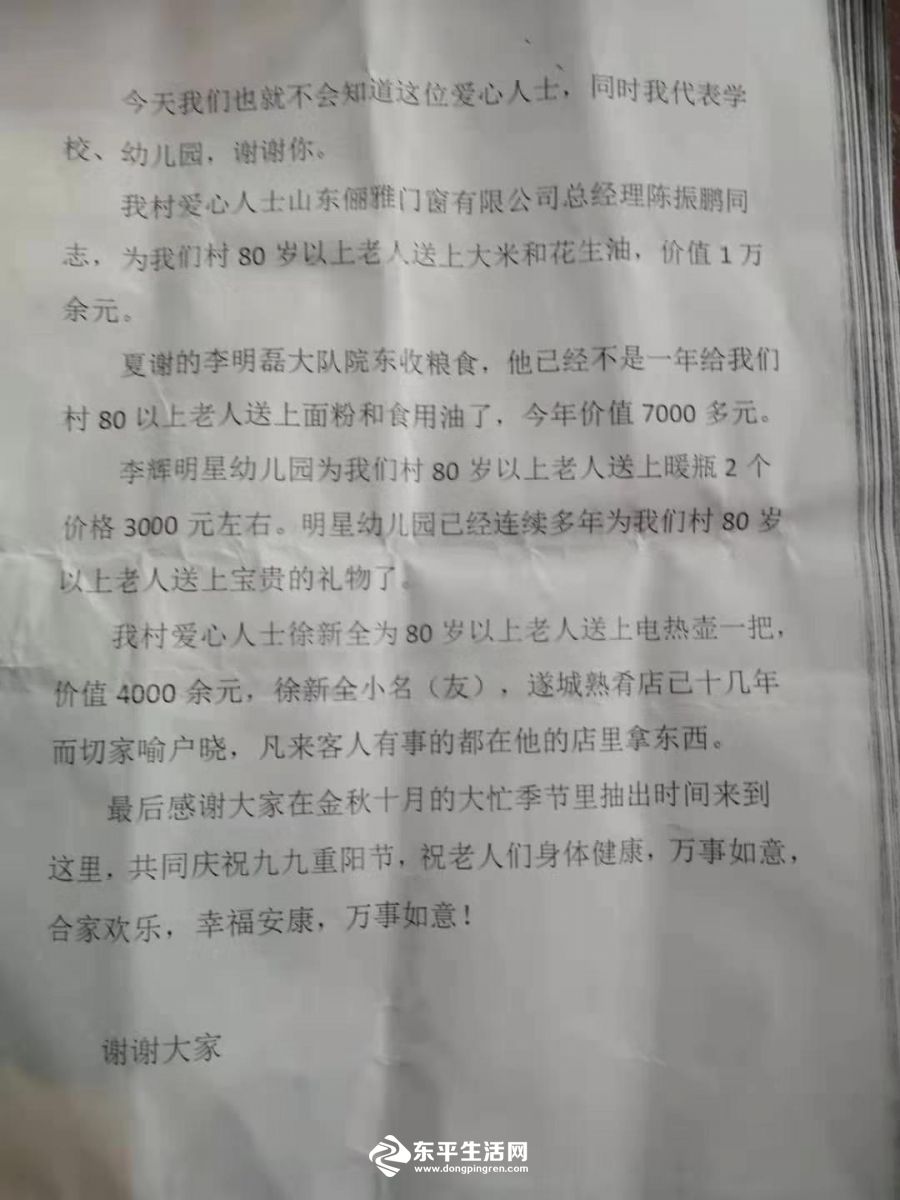 今天我们也就不会知道这位爱心人士，同时我代表学
校、幼儿园，谢谢你。
我村爱心人士山东俪雅门窗有限公司总经理陈振鹏同
志，为我们村 80 岁以上老人送上大米和花生油，价值 1 万
余元。
夏谢的李明磊大队院东收粮食，他已经不是一年给我们
村 80 以上老人送上面粉和食用油了，今年价值 7000 多元。
李辉明星幼儿园为我们村 80 岁以上老人送上暖瓶 2 个
价格 3000 元左右。明星幼儿园已经连续多年为我们村 80 岁
以上老人送上宝贵的礼物了。
我村爱心人士徐新全为 80 岁以上老人送上电热壶一把，
价值 4000 余元，徐新全小名（友），遂城熟肴店已十几年
而切家喻户晓，凡来客人有事的都在他的店里拿东西。
最后感谢大家在金秋十月的大忙季节里抽出时间来到
这里，共同庆祝九九重阳节，祝老人们身体健康，万事如意，
合家欢乐，幸福安康，万事如意！
谢谢大家
东平生活网
www.dongpingren.com